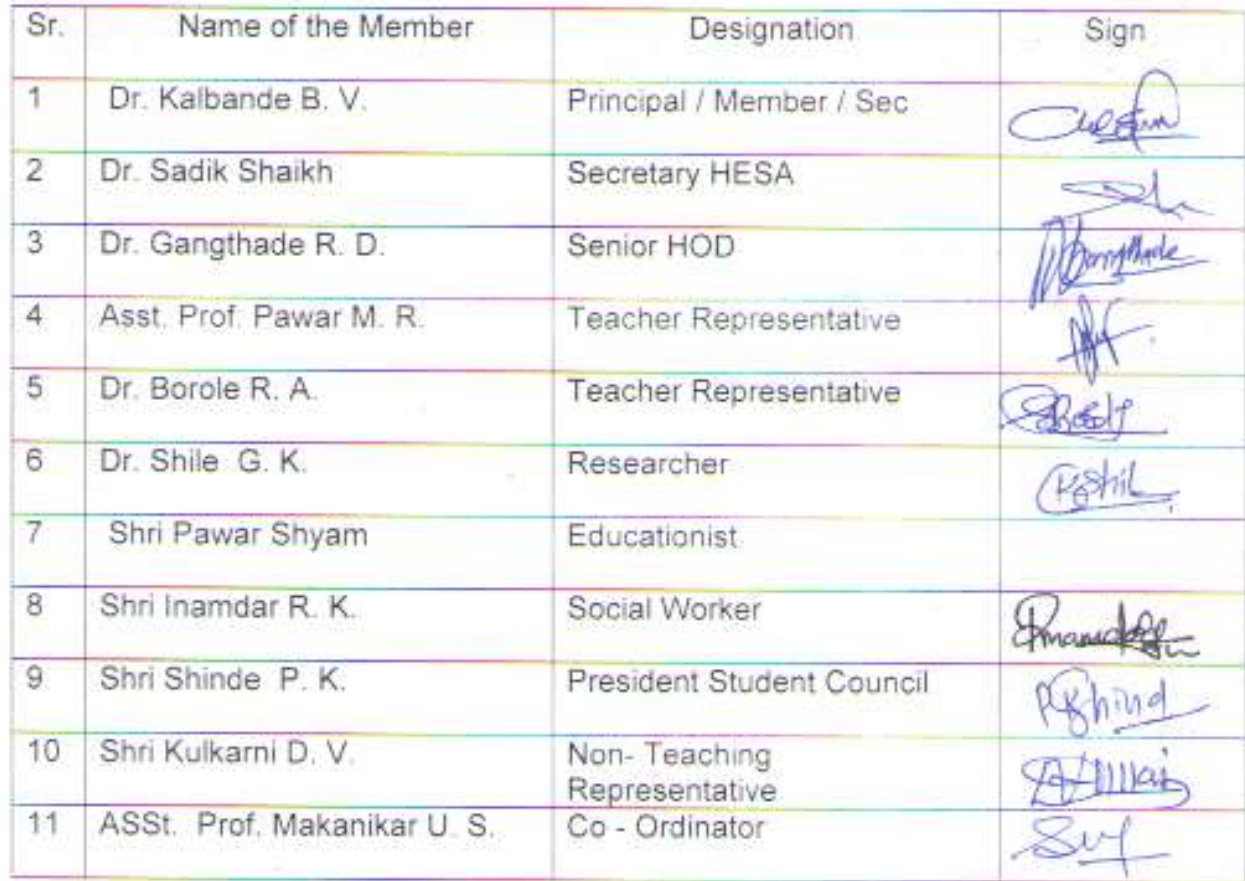 Sr. Name of the Member Designation Sign
1 Dr. Kalbande B. V. Principal / Member / Sec
2 Dr. Sadik Shaikh Secretary HESA
3 Dr. Gangthade R. D. Senior HOD
4 Asst. Prof. Pawar M. R. Teacher Representative
5 Dr. Borole R. A. Teacher Representative
6 Dr. Shile G. K. Researcher
7 Shri Pawar Shyam Educationist
8 Shri Inamdar R. K. Social Worker
9 Shri Shinde P. K. President Student Council
10 Shri Kulkarni D. V. Non- Teaching
Representative
11 ASSt. Prof. Makanikar U. S. Co - Ordinator